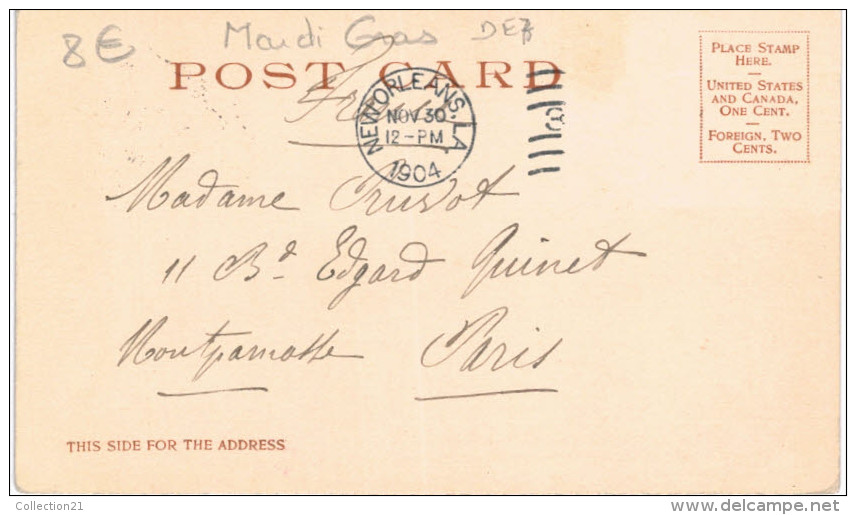 8€ Mardi Gras DEF
POST CARD
France
NEW ORLEANS, LA
NOV 30
12-PM
1904
PLACE STAMP
HERE.
UNITED STATES
AND CANADA,
ONE CENT.
FOREIGN, TWO
CENTS.
Madame Pruvot
11 Bd Edgard Quinet
Montparnasse Paris
THIS SIDE FOR THE ADDRESS
Collection21
www.delcampe.net